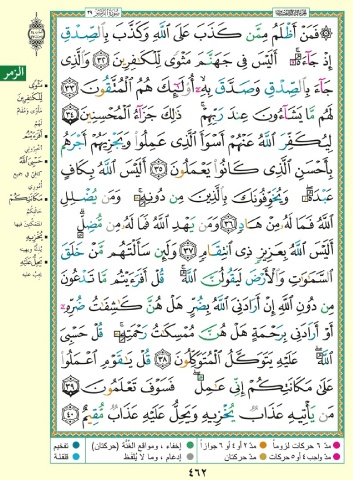 سُورَةُ الزُّمَرِ ٣٩
۞ فَمَنْ أَظْلَمُ مِمَّن كَذَبَ عَلَى اللَّهِ وَكَذَّبَ بِالصِّدْقِ
إِذْ جَاءَهُ أَلَيْسَ فِي جَهَنَّمَ مَثْوًى لِّلْكَافِرِينَ ٣٢ وَالَّذِي
جَاءَ بِالصِّدْقِ وَصَدَّقَ بِهِ أُولَٰئِكَ هُمُ الْمُتَّقُونَ ٣٣
لَهُم مَّا يَشَاءُونَ عِندَ رَبِّهِمْ ذَٰلِكَ جَزَاءُ الْمُحْسِنِينَ ٣٤
لِيُكَفِّرَ اللَّهُ عَنْهُمْ أَسْوَأَ الَّذِي عَمِلُوا وَيَجْزِيَهُمْ أَجْرَهُم
بِأَحْسَنِ الَّذِي كَانُوا يَعْمَلُونَ ٣٥ أَلَيْسَ اللَّهُ بِكَافٍ
عَبْدَهُ وَيُخَوِّفُونَكَ بِالَّذِينَ مِن دُونِهِ وَمَن يُضْلِلِ
اللَّهُ فَمَا لَهُ مِنْ هَادٍ ٣٦ وَمَن يَهْدِ اللَّهُ فَمَا لَهُ مِن مُّضِلٍّ
أَلَيْسَ اللَّهُ بِعَزِيزٍ ذِي انتِقَامٍ ٣٧ وَلَئِن سَأَلْتَهُم مَّنْ خَلَقَ
السَّمَاوَاتِ وَالْأَرْضَ لَيَقُولُنَّ اللَّهُ قُلْ أَفَرَأَيْتُم مَّا تَدْعُونَ
مِن دُونِ اللَّهِ إِنْ أَرَادَنِيَ اللَّهُ بِضُرٍّ هَلْ هُنَّ كَاشِفَاتُ ضُرِّهِ
أَوْ أَرَادَنِي بِرَحْمَةٍ هَلْ هُنَّ مُمْسِكَاتُ رَحْمَتِهِ قُلْ حَسْبِيَ
اللَّهُ عَلَيْهِ يَتَوَكَّلُ الْمُتَوَكِّلُونَ ٣٨ قُلْ يَا قَوْمِ اعْمَلُوا
عَلَىٰ مَكَانَتِكُمْ إِنِّي عَامِلٌ فَسَوْفَ تَعْلَمُونَ ٣٩
مَن يَأْتِيهِ عَذَابٌ يُخْزِيهِ وَيَحِلُّ عَلَيْهِ عَذَابٌ مُّقِيمٌ ٤٠
الزمر
مَثْوًى
لِلْكَافِرِينَ
أَفَرَأَيْتُم
حَسْبِيَ اللَّهُ
مَكَانَتِكُمْ
يُخْزِيهِ
يَحِلُّ عَلَيْهِ
مدّ ٦ حركات لزوماً
مدّ ٢ أو ٤ أو ٦ جوازاً
إخفاء، ومواقع الغُنَّة (حركتان)
تفخيم
مدّ واجب ٤ أو ٥ حركات
مدّ حركتان
إدغام، وما لا يُلفَظ
قلقلة
٤٦٢